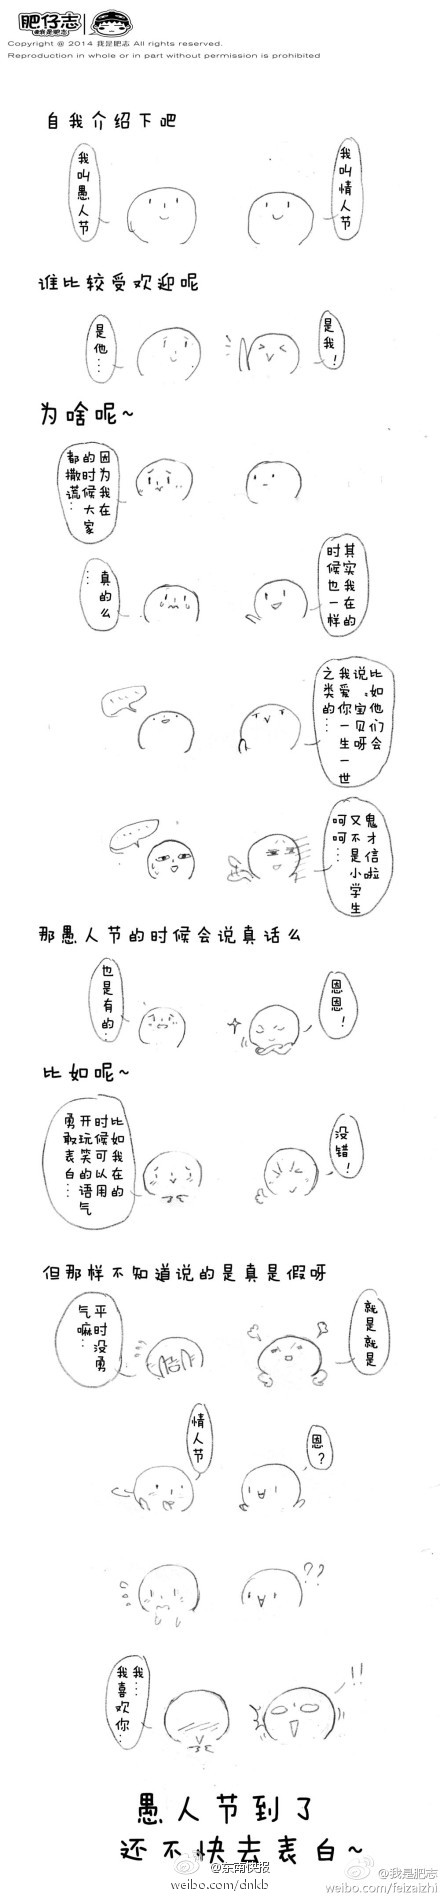 肥仔志
我是肥志
Copyright @ 2014 我是肥志 All rights reserved.
Reproduction in whole or in part without permission is prohibited
自我介绍下吧
我叫愚人节
我叫情人节
谁比较受欢迎呢
是他…
是我！
为啥呢~
因为我在
的时候大家
都撒谎…
其实我在的
时候也一样
真的么
…
比如他们会
说：宝贝呀
我爱你一生一世
之类的…
……
鬼才信啦
又不是小学生
呵呵…
……
那愚人节的时候会说真话么
也是有的…
恩恩！
比如呢~
比如我在的
时候可以用
开玩笑的语气
勇敢表白…
没错！
但那样不知道说的是真是假呀
平时没勇
气嘛…
就是就是
情人节
恩？
??
我…
我喜欢你…
!!
愚人节到了
还不快去表白~
@东南快报
weibo.com/dnkb
@我是肥志
weibo.com/feizaizhi